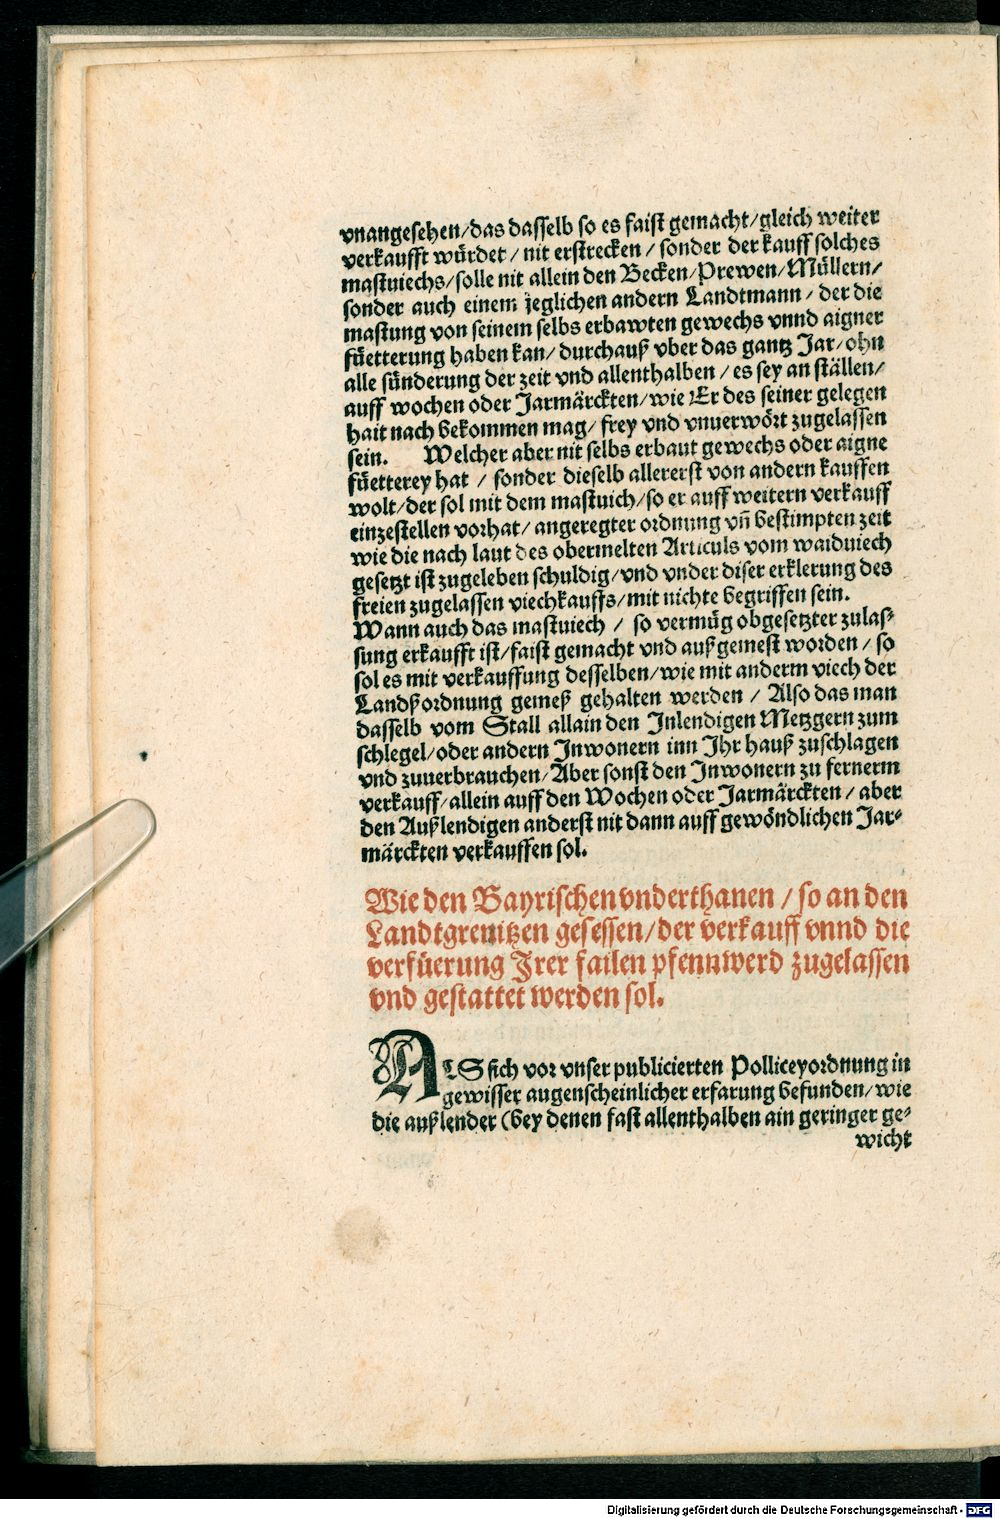 vnangesehen/das dasselb so es faist gemacht/gleich weiter
verkaufft würdet / nit erstrecken / sonder der kauff solches
mastuiechs/solle nit allein den Becken/Prewen/Müllern/
sonder auch einem jeglichen andern Landtmann / der die
mastung von seinem selbs erbawten gewechs vnnd aigner
füetterung haben kan/ durchauß vber das gantz Jar/ ohn
alle sünderung der zeit vnd allenthalben / es sey an ställen/
auff wochen oder Jarmärckten/wie Er des seiner gelegen
hait nach bekommen mag/ frey vnd vnuerwört zugelassen
sein. Welcher aber nit selbs erbaut gewechs oder aigne
füetterey hat / sonder dieselb allererst von andern kauffen
wolt/der sol mit dem mastuich/so er auff weitern verkauff
einzestellen vorhat/ angeregter ordnung vñ bestimpten zeit
wie die nach laut des obermelten Articuls vom waiduiech
gesetzt ist zugeleben schuldig/vnd vnder diser erklerung des
freien zugelassen viechkauffs/mit nichte begriffen sein.
Wann auch das mastuiech / so vermüg obgesetzter zulas-
sung erkaufft ist/faist gemacht vnd außgemest worden / so
sol es mit verkauffung desselben/wie mit anderm viech der
Landßordnung gemeß gehalten werden / Also das man
dasselb vom Stall allain den Inlendigen Metzgern zum
schlegel/oder andern Inwonern inn Ihr hauß zuschlagen
vnd zuuerbrauchen/Aber sonst den Inwonern zu fernerm
verkauff/allein auff den Wochen oder Jarmärckten / aber
den Außlendigen anderst nit dann auff gewöndlichen Jar-
märckten verkauffen sol.
Wie den Bayrischen vnderthanen / so an den
Landtgrenitzen gesessen/der verkauff vnnd die
verfüerung Irer failen pfennwerd zugelassen
vnd gestattet werden sol.
ALS sich vor vnser publicierten Polliceyordnung in
gewisser augenscheinlicher erfarung befunden/wie
die außlender (bey denen fast allenthalben ain geringer ge-
wicht
Digitalisierung gefördert durch die Deutsche Forschungsgemeinschaft - DFG